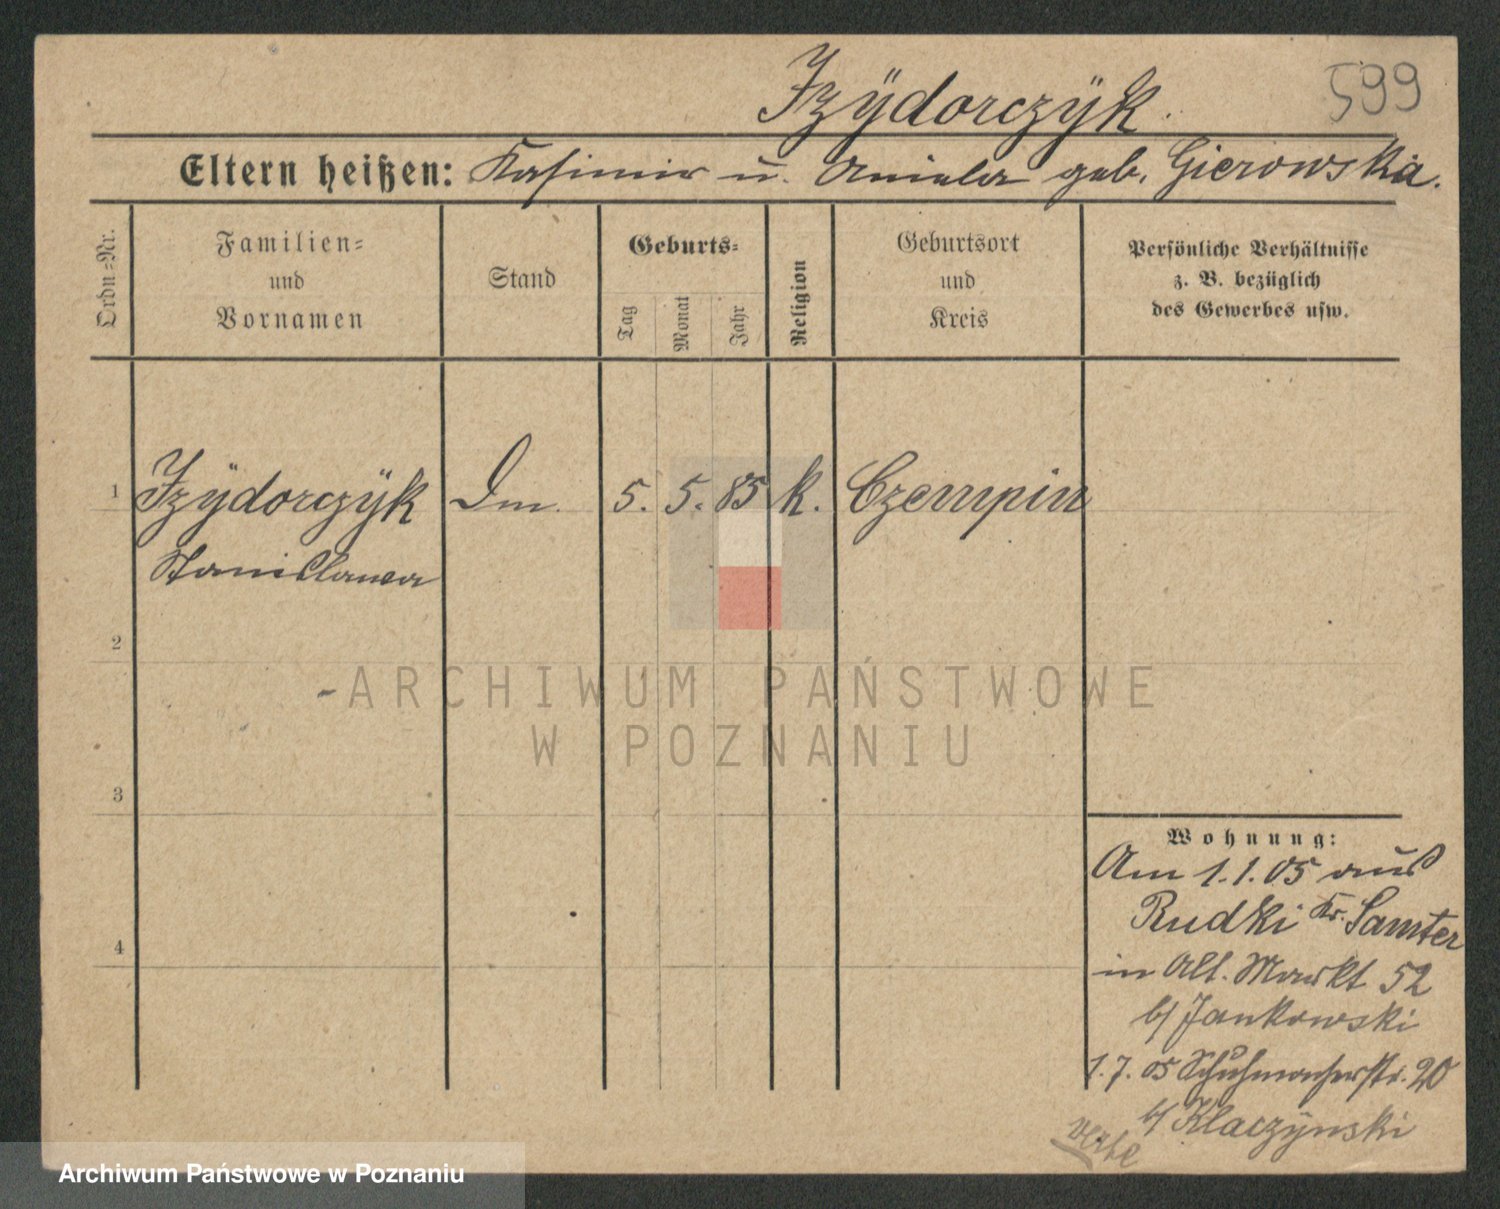 Izÿdorczÿk.
599
Eltern heißen: Kasimir u. Aniela geb. Gierowska.
Ordn=Nr.
Familien=
und
Vornamen
Stand
Geburts=
Tag
Monat
Jahr
Religion
Geburtsort
und
Kreis
Persönliche Verhältnisse
z. B. bezüglich
des Gewerbes usw.
1 Izÿdorczÿk Dm. 5. 5. 85 k. Czempin
Stanislawa
2
ARCHIWUM PAŃSTWOWE
W POZNANIU
3
Wohnung:
Am 1.1.05 aus
Rudki Kr. Samter
4
in Alt. Markt 52
b/ Jankowski
1.7.05 Schuhmacherstr. 20
b/ Klaczynski
Archiwum Państwowe w Poznaniu